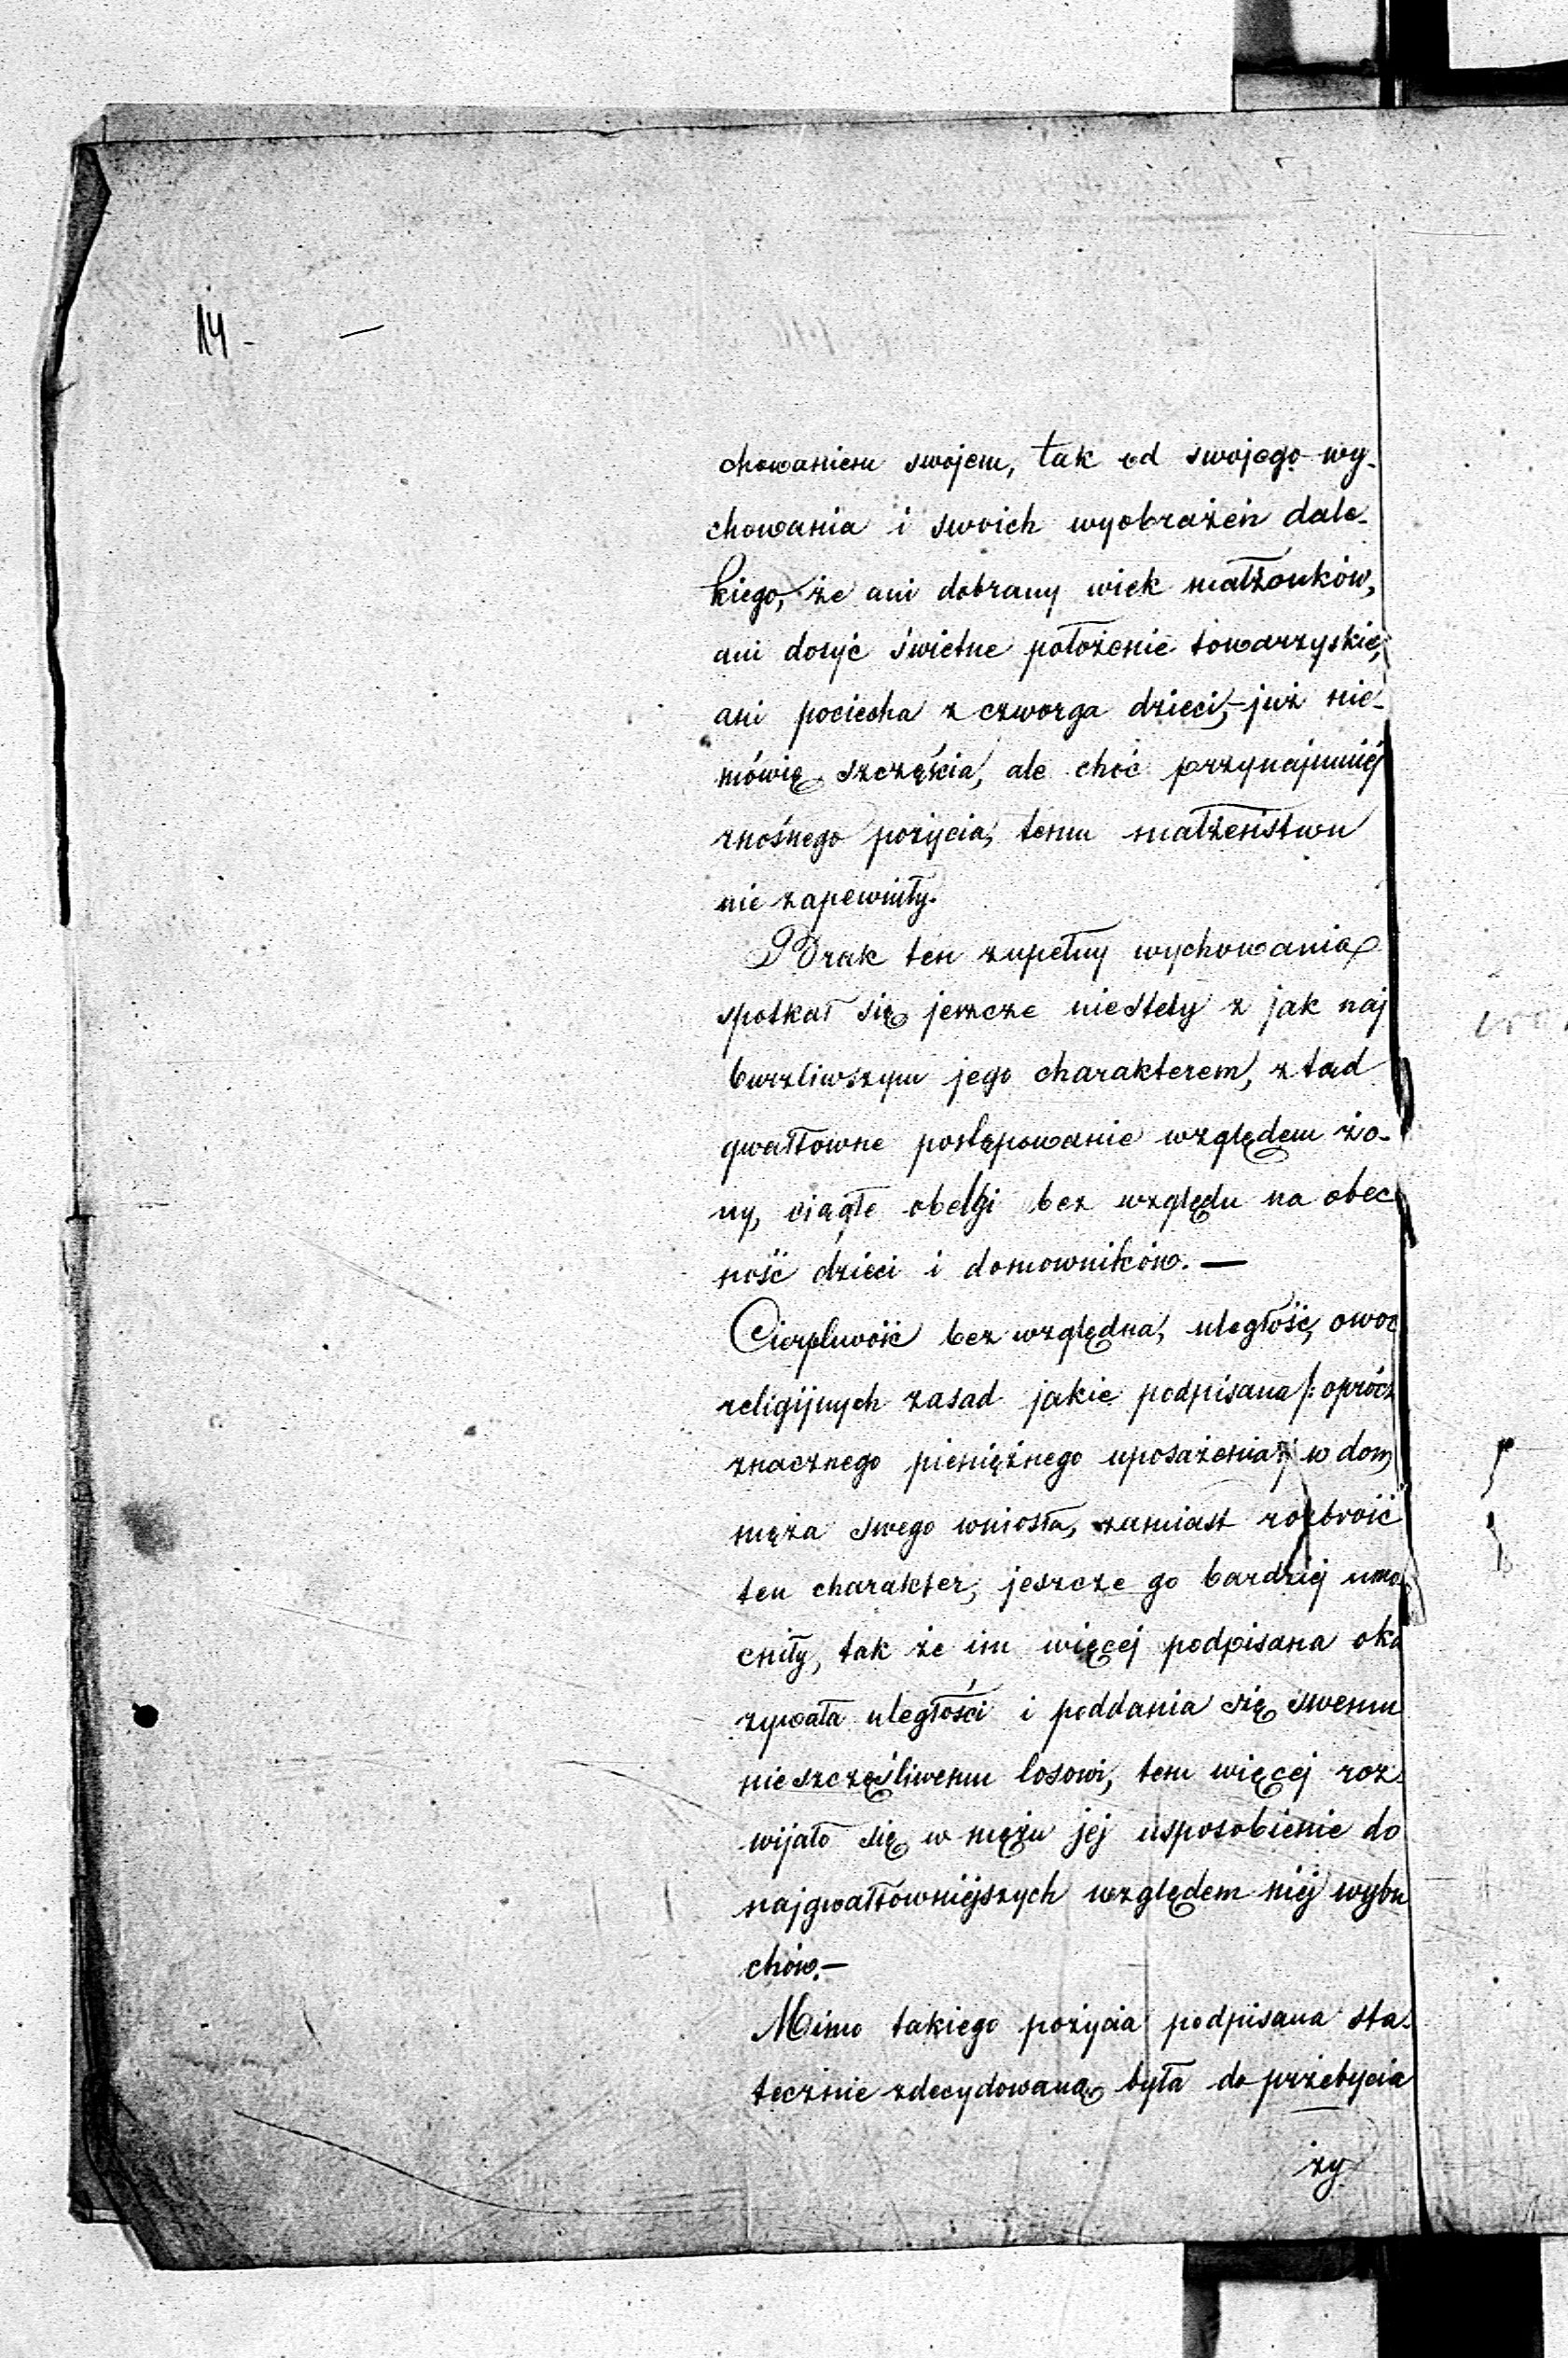 14 - —
chowaniem swojem, tak od swojego wy-
chowania i swoich wyobrażeń dale-
kiego, że ani dobrany wiek małżonków,
ani dosyć świetne położenie towarzyskie,
ani pociecha z czworga dzieci, – już nie-
mówię szczęścia, ale choć przynajmniéj
znośnego pożycia, temu małżeństwu
nie zapewniły.
Brak ten zupełny wychowania
spotkał się jeszcze niestety z jak naj
burzliwszym jego charakterem, ztąd
gwałtowne postępowanie względem żo-
ny, ciągłe obelgi bez względu na obec
ność dzieci i domowników. —
Cierpliwość bez względna, uległość, owoc
religijnych zasad jakie podpisana /: oprócz
znacznego pieniężnego uposażenia :/ w dom
męża swego wniosła, zamiast rozbroić
ten charakter, jeszcze go bardziej umo
cniły, tak że im więcej podpisana oka
zywała uległości i poddania się swemu
nieszczęśliwemu losowi, tem więcej roz-
wijało się w mężu jej usposobienie do
najgwałtowniejszych względem niéj wybu
chów. —
Mimo takiego pożycia podpisana sta-
tecznie zdecydowaną była do przebycia
ży